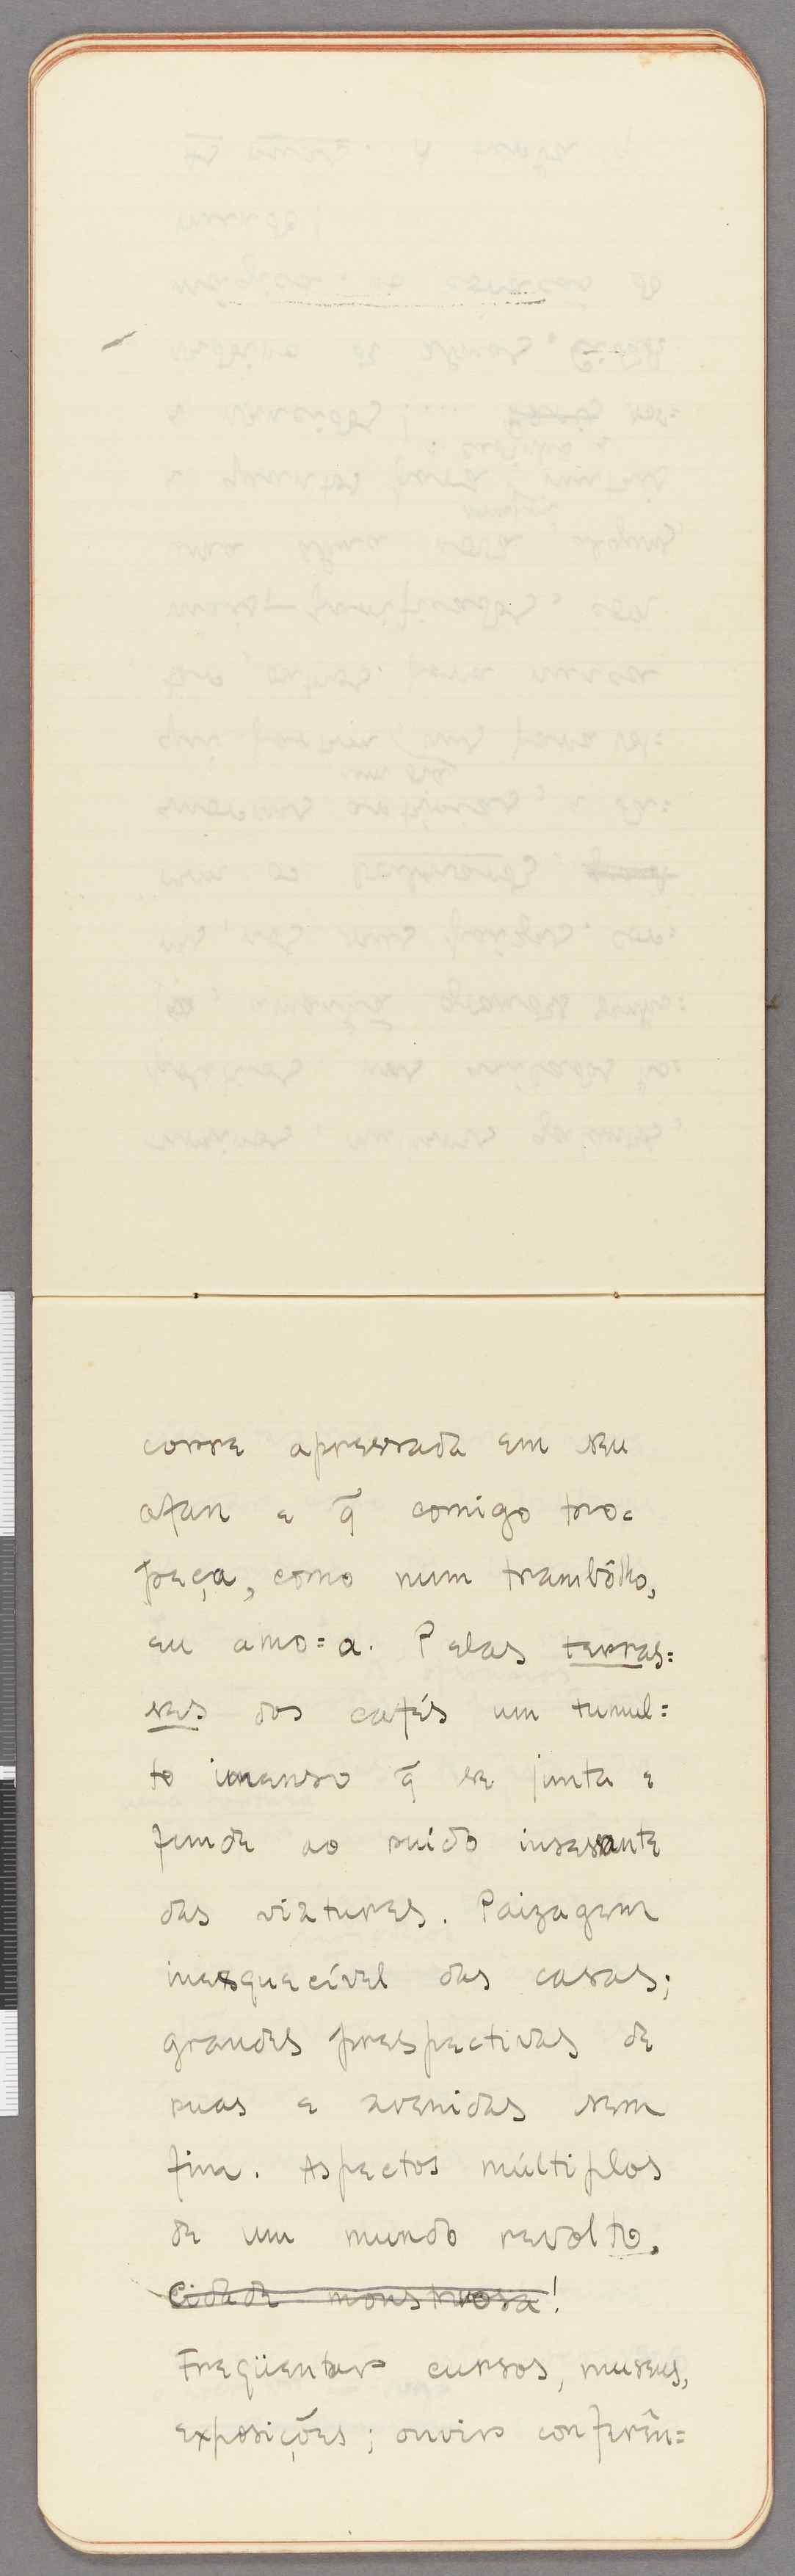 corre apressada em seu
afan e q̃ comigo tro=
peça, como num trambôlho,
eu amo=a. Pelas terras=
ses dos cafés um tumul=
to imenso q̃ se junta e
funde ao ruído insessante
das viatures. Paizagem
inesquecível das casas;
grandes prespectivas de
ruas e avenidas sem
fim. Aspectos múltiplos
de um mundo revolto.
Cidade monstruosa!
Freqüentar cursos, museus,
exposições; ouvir conferên=